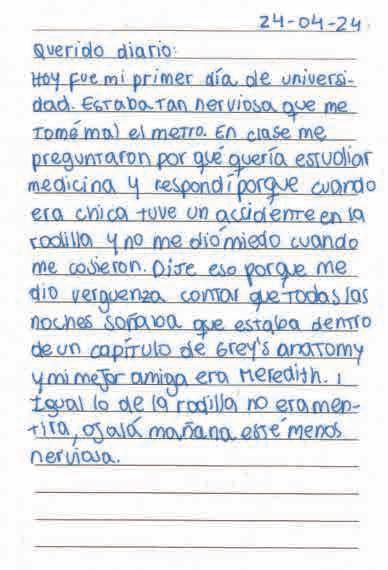 24-04-24
Querido diario:
Hoy fue mi primer día de universi-
dad. Estaba tan nerviosa que me
tomé mal el metro. En clase me
preguntaron por qué quería estudiar
medicina y respondí porque cuando
era chica tuve un accidente en la
rodilla y no me dió miedo cuando
me cosieron. Dije eso porque me
dio verguenza contar que todas las
noches soñaba que estaba dentro
de un capítulo de Grey's anatomy
y mi mejor amiga era Meredith.
Igual lo de la rodilla no era men-
tira, ojalá mañana esté menos
nerviosa.